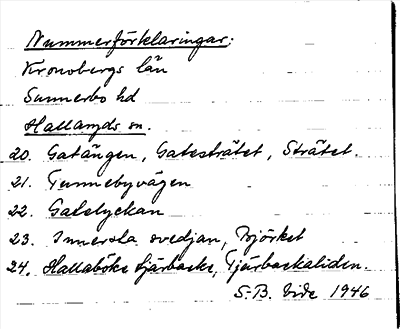 Nummerförklaringar:
Kronobergs län
Sunnerbo hd
Hallaryds sn.
20. Gatängen, Gatesträtet, Strätet.
21. Tunnebyvägen
22. Gatelyckan
23. Innersta svedjan, Björket
24. Hallaböke tjärbacke, Tjärbackaliden.
S.B. Vide 1946